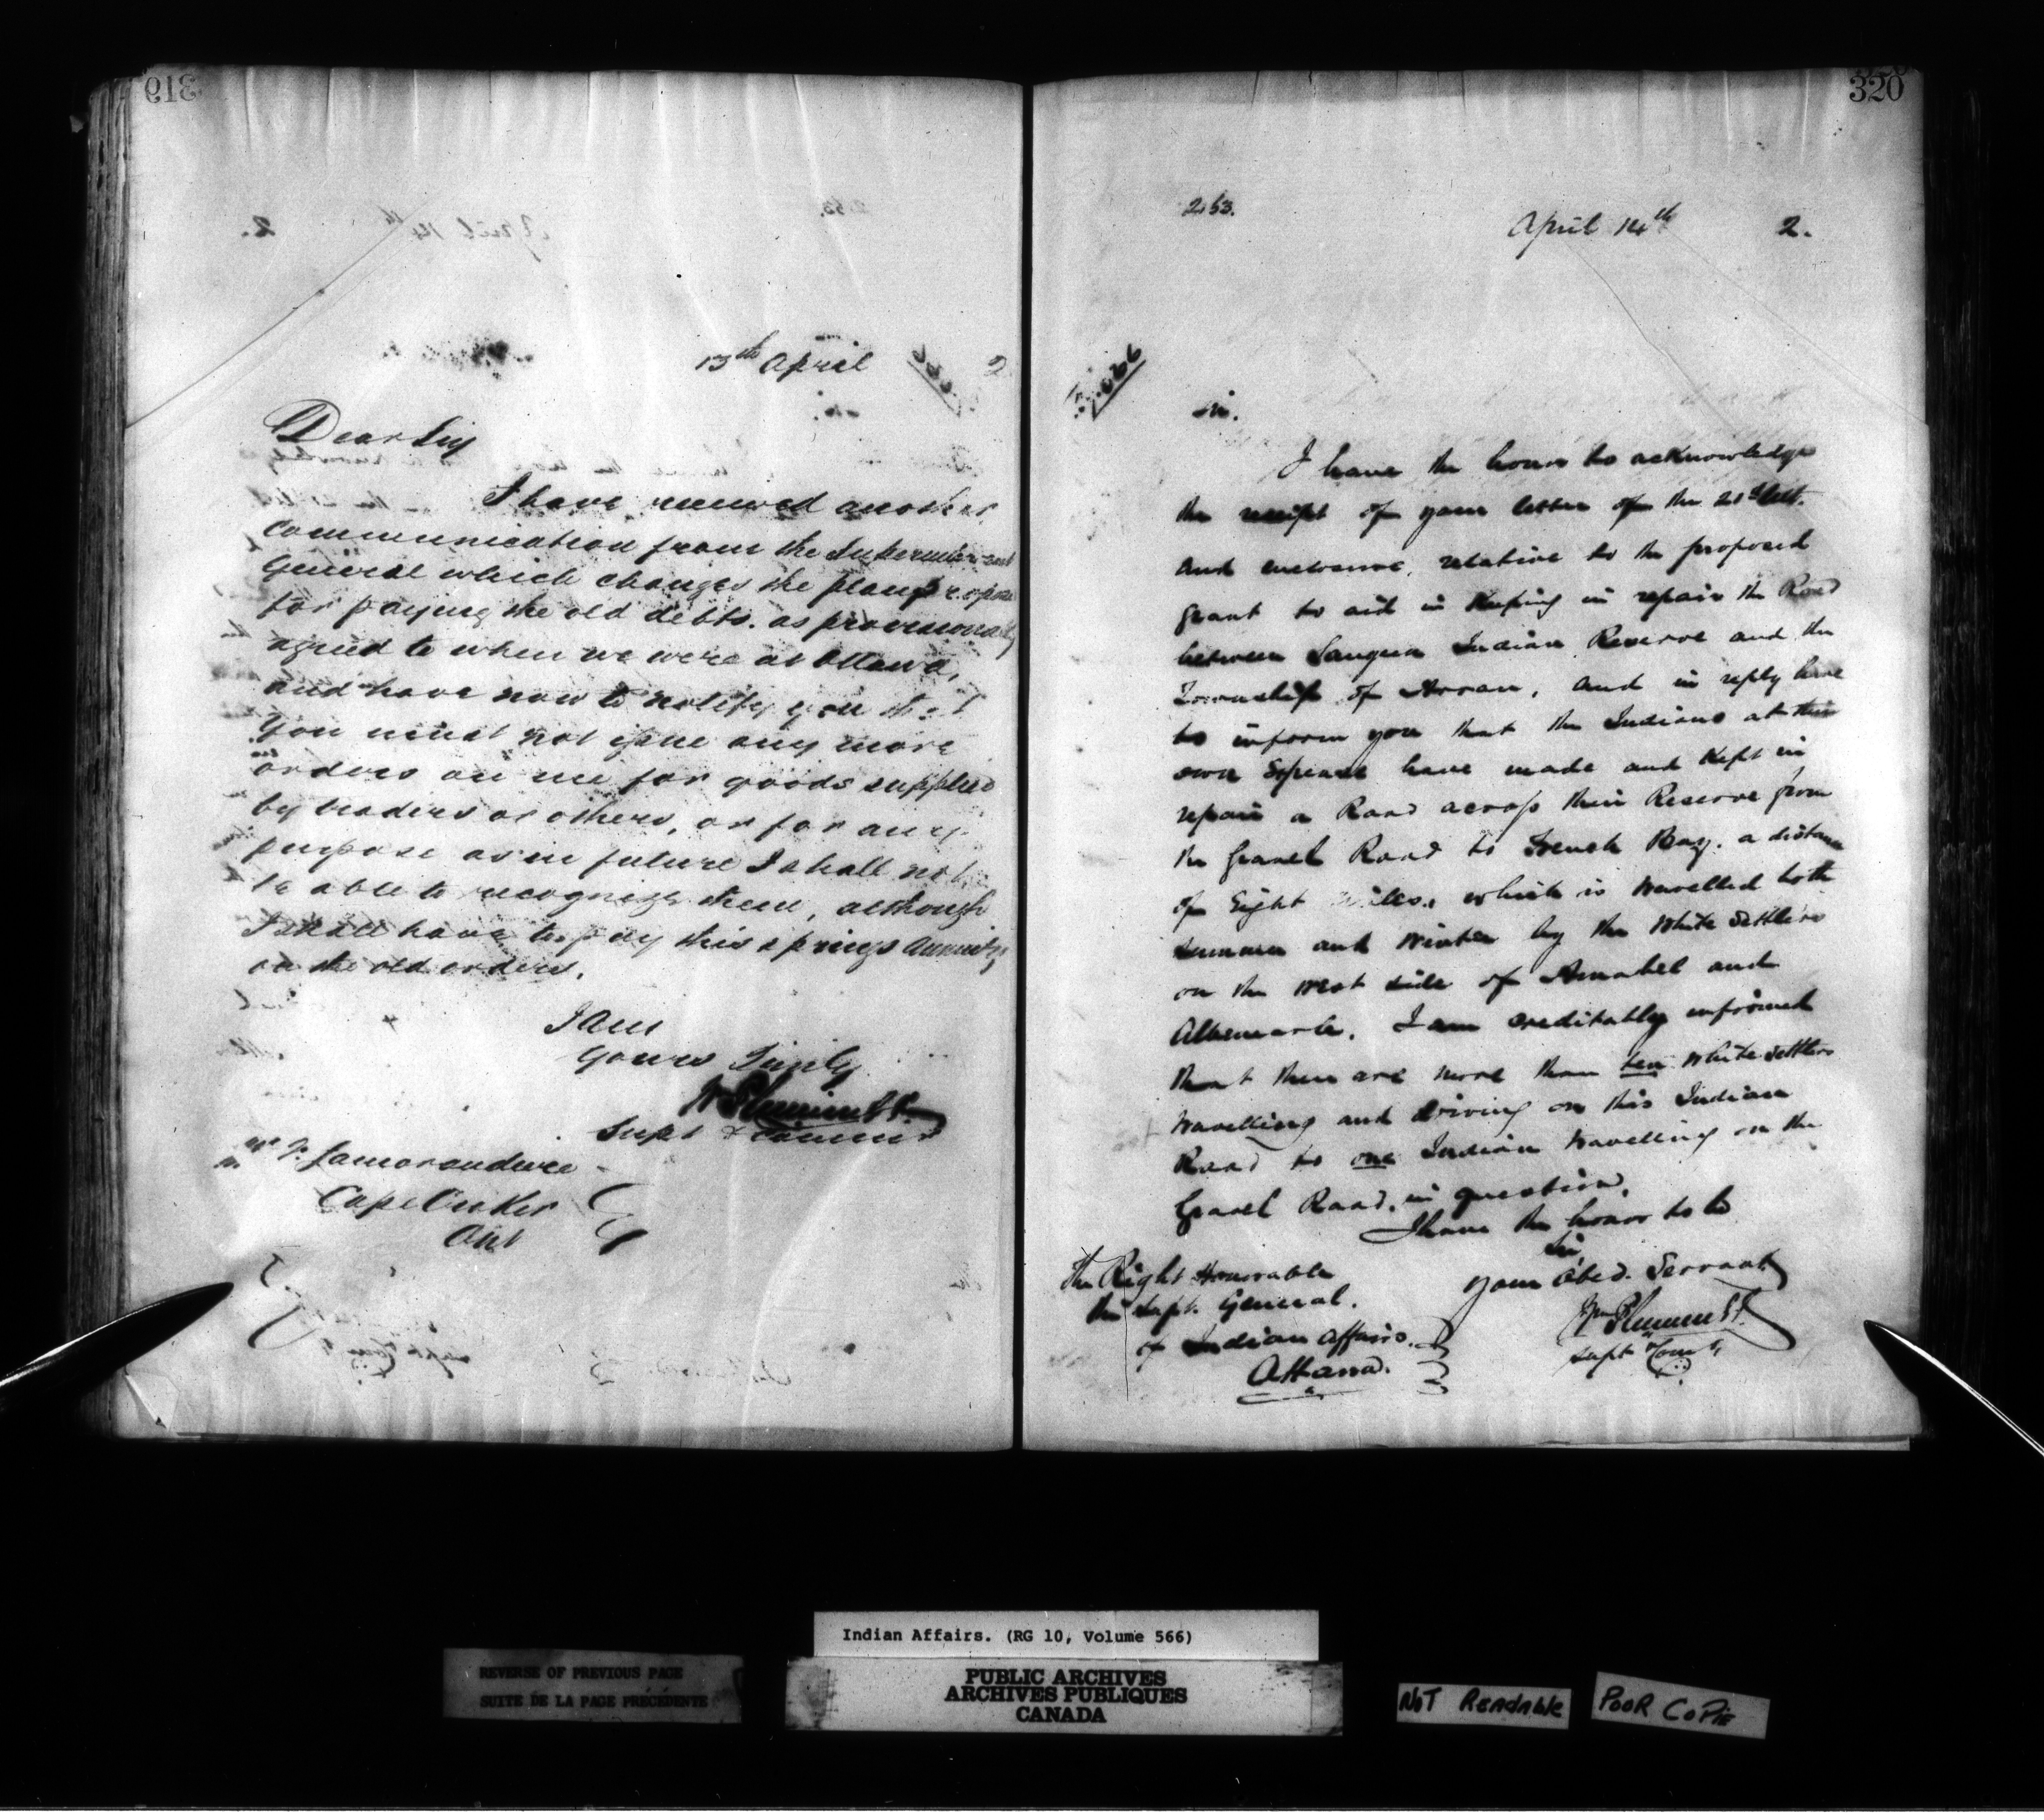 319
13th April 2
Dear Sir
I have received another
communication from the Superintendent
General which changes the plan propose
for paying the old debts. as provisionally
agreed to when we were at Ottawa,
and have now to notify you that
you must not issue any more
orders on me for goods supplied
by traders or others, or for any
purpose as in future I shall not
be able to recognize them, although
I shall have to pay this springs annuity
on the old orders.
I am
Yours Truly
W Plummer
Supt & Commr
Mr F. Lamorandiere
Cape Croker
Ont
320
253.
April 14th 2.
Sir.
I have the honor to acknowledge
the receipt of your letter of the 21st Ult.
and enclosure, relative to the proposed
grant to aid in Keeping in repair the Road
between Saugeen Indian Reserve and the
Township of Arran, and in reply have
to inform you that the Indians at their
own Expense have made and Kept in
repair a Road across their Reserve from
the Gravel Road to French Bay. a distance
of Eight Miles, which is travelled both
Summer and Winter by the White Settlers
on the West side of Amabel and
Albemarle. I am creditably informed
that there are more than ten White Settlers
travelling and driving on this Indian
Road to one Indian travelling on the
Gravel Road, in question.
I have the honor to be
Sir
Your Obed. Servant
Wm Plummer
Supt Comr
The Right Honorable
the Supt. General.
of Indian Affairs.
Ottawa.
Indian Affairs. (RG 10, Volume 566)
REVERSE OF PREVIOUS PAGE
SUITE DE LA PAGE PRÉCÉDENTE
PUBLIC ARCHIVES
ARCHIVES PUBLIQUES
CANADA
NOT READABLE
POOR COPIE